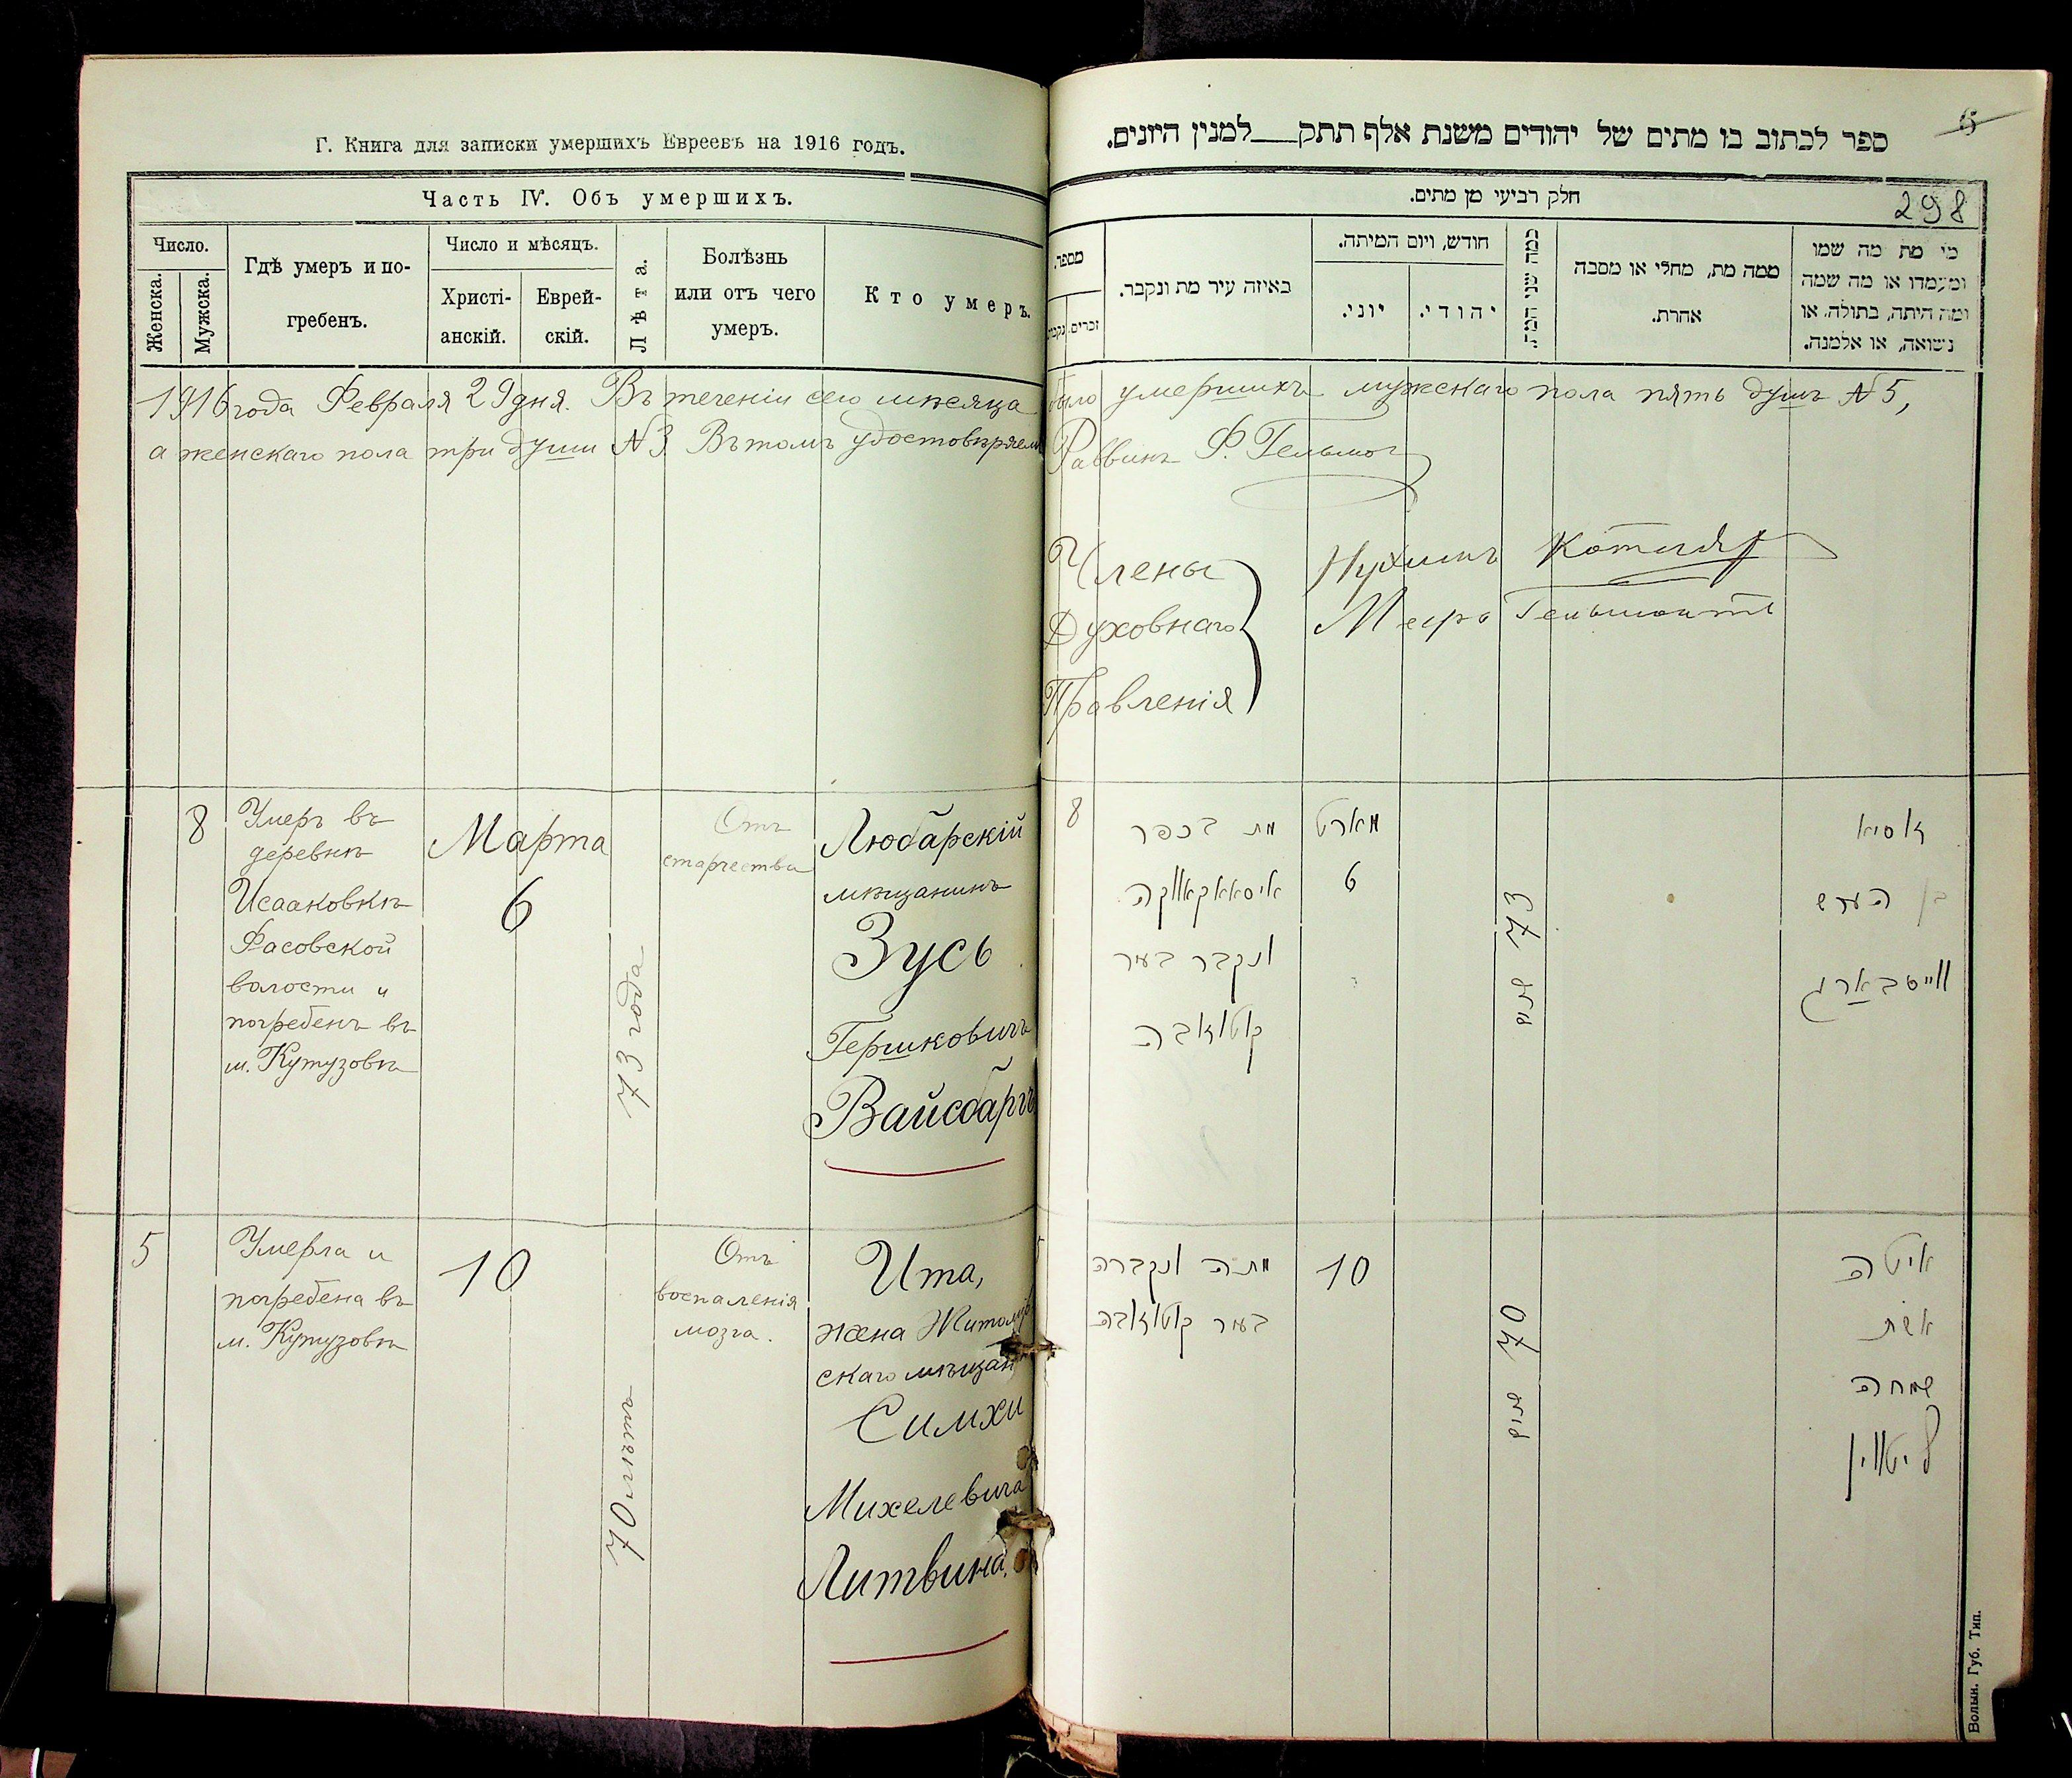 Г. Книга для записки умершихъ Евреевъ на 1916 годъ.
Часть IV. Объ умершихъ.
Число.
Женска.
Мужска.
Гдѣ умеръ и по-
гребенъ.
Число и мѣсяцъ.
Христі-
анскій.
Еврей-
скій.
Лѣта.
Болѣзнь
или отъ чего
умеръ.
Кто умеръ.
1916 года Февраля 29 дня. Въ теченіи сего мѣсяца было умершихъ мужскаго пола пять душъ №5,
а женскаго пола три души №3 Въ томъ удостовѣряемъ
Раввинъ Ф.
Члены
Духовнаго
Правленія
Нухимъ Котляр
Мееръ
8
Умеръ въ
деревнѣ
Исааковкѣ
Фасовской
волости и
погребенъ въ
м. Кутузовкѣ
Марта
6
73 года
Отъ
старчества
Любарскій
мѣщанинъ
Зусь
Гершковичъ
Вайсбаргъ
5
Умерла и
погребена въ
м. Кутузовкѣ
10
70 лѣтъ
Отъ
воспаленія
мозга.
Ита,
жена Житомір
скаго мѣщан
Симхи
Михелевича
Литвина.
6
ספר לכתוב בו מתים של יהודים משנת אלף תתק למנין היונים.
298
חלק רביעי מן מתים.
מי מת מה שמו
ומעמדו או מה שמה
ומה היתה, בתולה, או
נשואה, או אלמנה.
ממה מת, מחלי או מסבה
אחרת.
כמה שני המת.
חודש, ויום המיתה.
יהודי.
יוני.
באיזה עיר מת ונקבר.
מספר.
זכרים.
8
מת בכפר
איסאאקאווקה
ונקבר בעיר
קוטוזובה
מארט
6
73 שנים
זוסיא
בן הערש
ווייסבארג
מתה ונקברה
בעיר קוטוזובה
10
70 שנים
איטה
אשת
שמחה
ליטווין
Волын. Губ. Тип.